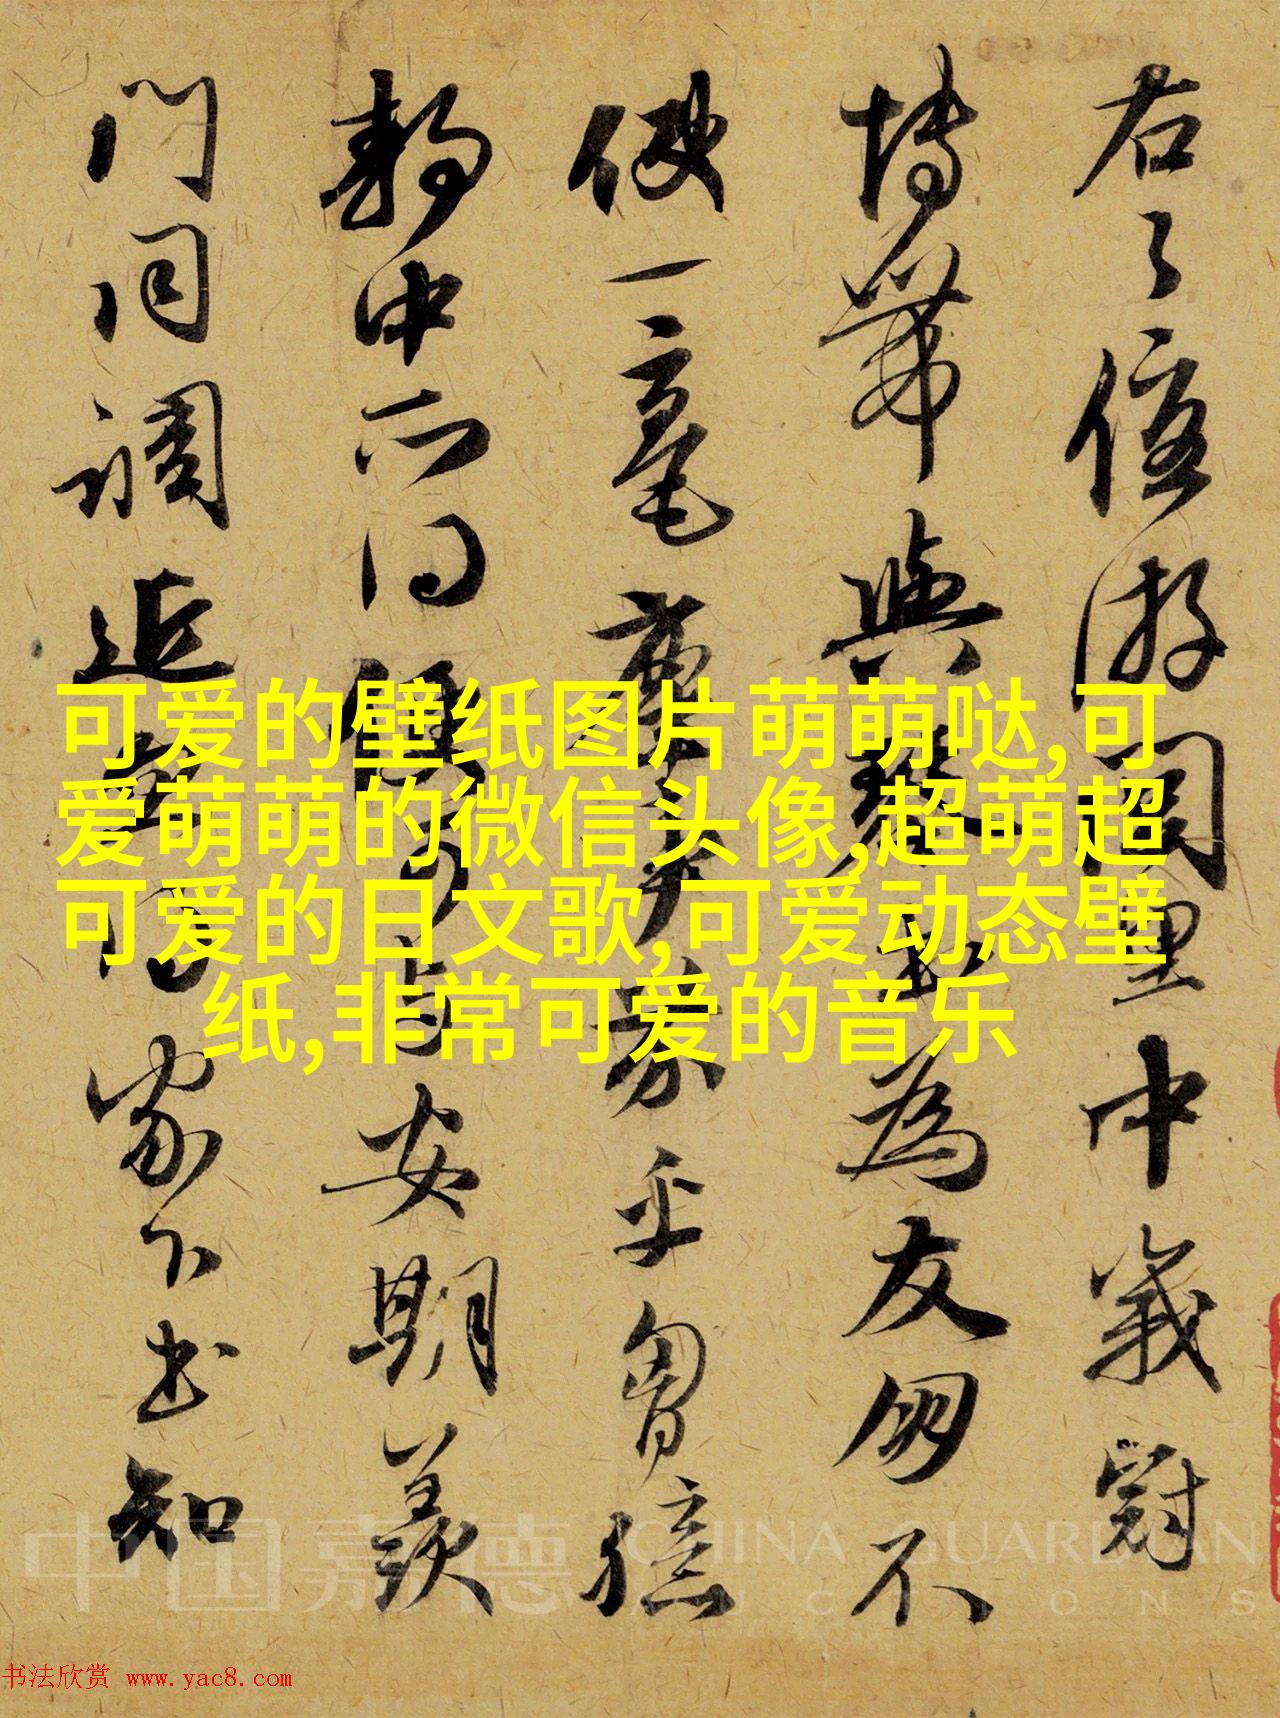 右優游閭里中峩冠
博帶與琴書為友朋不
使一毫塵芥乎胸臆
静中所得可与安期羨
門同調近家下書知
可爱的壁纸图片萌萌哒,可
爱萌萌的微信头像,超萌超
可爱的日文歌,可爱动态壁
纸,非常可爱的音乐
中国嘉德 CHINA GUARDIAN
AUCTIONS
书法欣赏 www.yac8.com